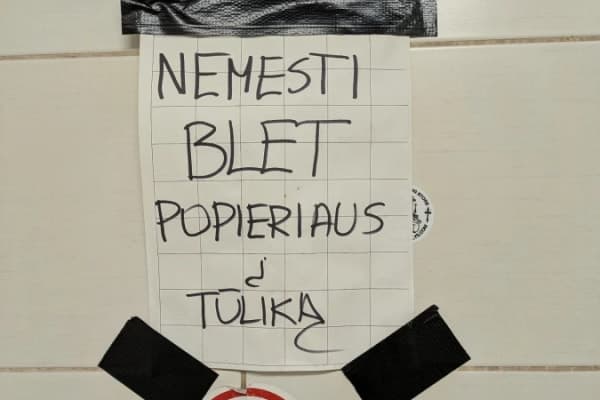 NEMESTI
BLET
POPIERIAUS
į
TŪLIKĄ